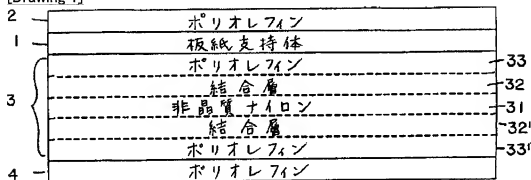 [Drawing 1]
2 ポリオレフィン
1 板紙支持体
ポリオレフィン 33
結合層 32
3 非晶質ナイロン 31
結合層 32'
ポリオレフィン 33'
4 ポリオレフィン